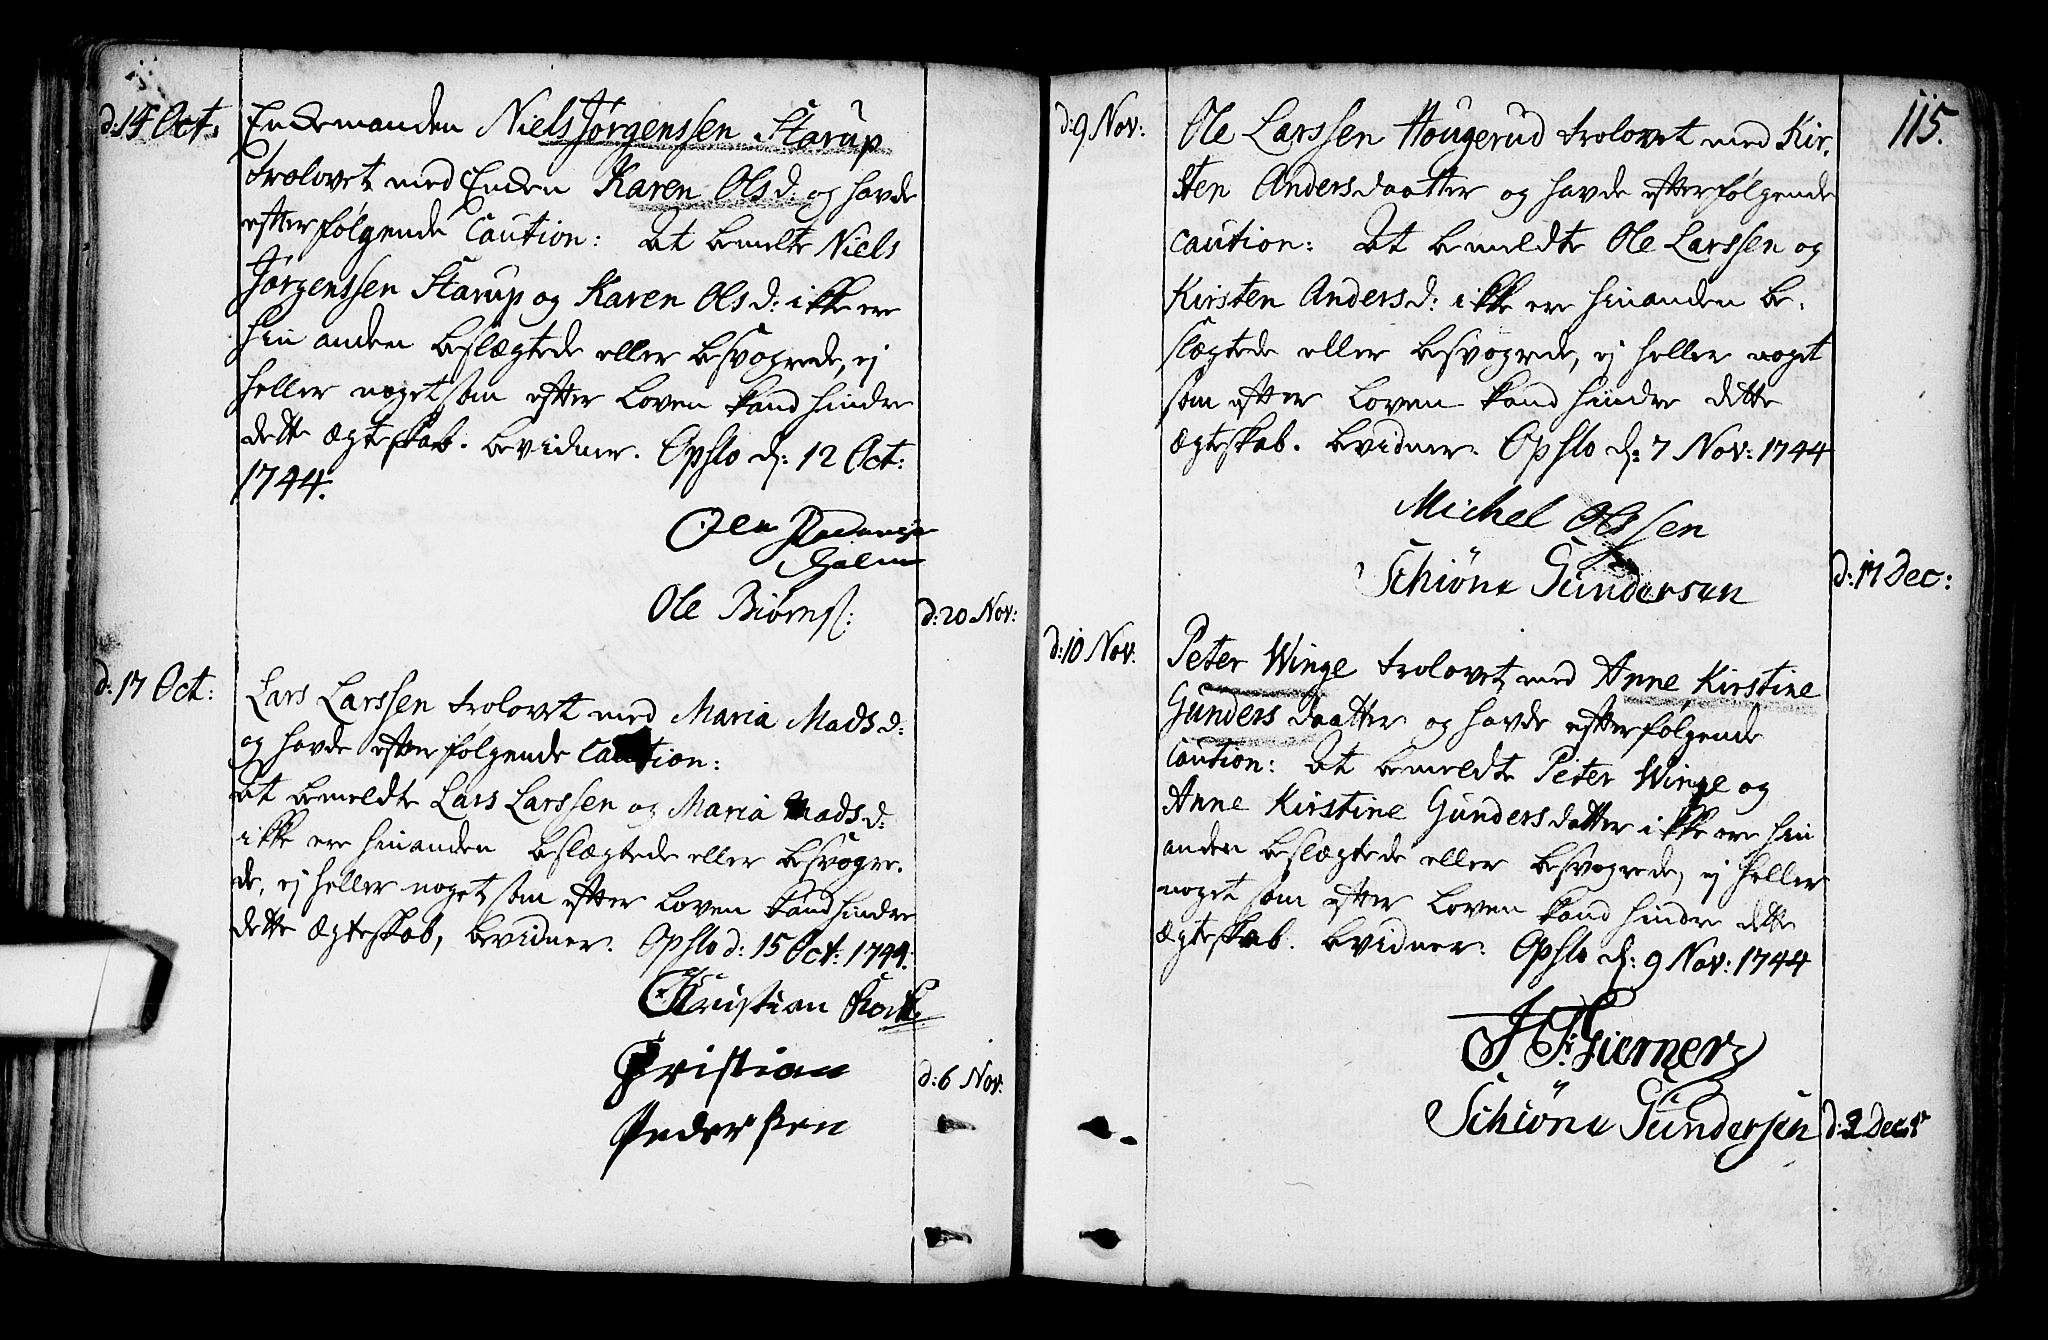 d: 14 Oct:
Enckemanden Niels Jørgenssen Starup
trolovet med Encken Karen Olsd: og havde
efterfølgende Caution: At bemelte Niels
Jørgenssen Starup og Karen Olsd: ikke ere
hin anden beslægtede eller besvogrede, ej
heller noget som efter Loven kand hindre
dette ægteskab. bevidner. Opslo d: 12 Oct:
1744.
Ole Biørns:
d: 20 Nov:
d: 17 Oct:
Lars Larssen trolovet med Maria Madsd:
og havde efterfølgende Caution:
At bemeldte Lars Larssen og Maria Madsd:
ikke ere hinanden beslægtede eller besvogre-
de, ej heller noget som efter Loven kand hindre
dette ægteskab, bevidner. Opslo d: 15 Oct: 1744.
Christian
Christian
Pederssen
d: 6 Nov:
115.
d: 9 Nov:
Ole Larssen Hougerud trolovet med Kir-
sten Andersdaatter og havde efterfølgende
caution: At bemeldte Ole Larssen og
Kirsten Andersd: ikke ere hinanden be-
slægtede eller besvogrede, ej heller noget
som efter Loven kand hindre dette
ægteskab. bevidner. Opslo d: 7 Nov: 1744
Michel Olssen
Schiöne Gundersen
d: 17 Dec:
d: 10 Nov.
Peter Winge trolovet med Anne Kirstine
Gundersdaatter og havde efterfølgende
Caution: At bemeldte Peter Winge og
Anne Kirstine Gundersdatter ikke ere hin
anden beslægtede eller besvogrede, ej heller
noget som efter Loven kand hindre dette
ægteskab. bevidner. Opslo d: 9 Nov: 1744
Schiöne Gundersen
d: 2 Dec: